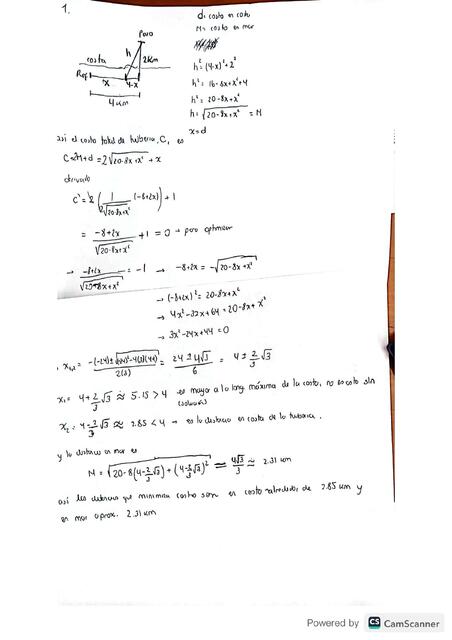 1.
d: costo en costa
M= costo en mar
Pozo
costa
h
2km
Ref
x
4-x
4 km
h²=(4-x)²+2²
h²=16-8x+x²+4
h²=20-8x+x²
h=√(20-8x+x²) = M
x=d
así el costo total de tubería, C, es
C=2M+d=2√(20-8x+x²) + x
derivado
C'=2(1/(2√(20-8x+x²)) (-8+2x))+1
= (-8+2x)/√(20-8x+x²) +1=0 → para optimizar
→ (-8+2x)/√(20-8x+x²) = -1 → -8+2x = -√(20-8x+x²)
→ (-8+2x)² = 20-8x+x²
→ 4x²-32x+64=20-8x+x²
→ 3x²-24x+44=0
x₁,₂ = (-(-24)±√((24)²-4(3)(44)))/2(3) = (24±4√3)/6 = 4±2/3√3
x₁= 4+2/3√3 ≈ 5.15>4 es mayor a la long máxima de la costa, no es
x₂= 4-2/3√3 ≈ 2.85<4 → es la distancia en costa de la tubería.
y la distancia en mar es
M=√(20-8(4-2/3√3)+(4-2/3√3)²) = 4√3/3 ≈ 2.31 km
así las distancias que minimizan costo son en costa alrededor de 2.85 km y
en mar aprox. 2.31 km
Powered by CS CamScanner